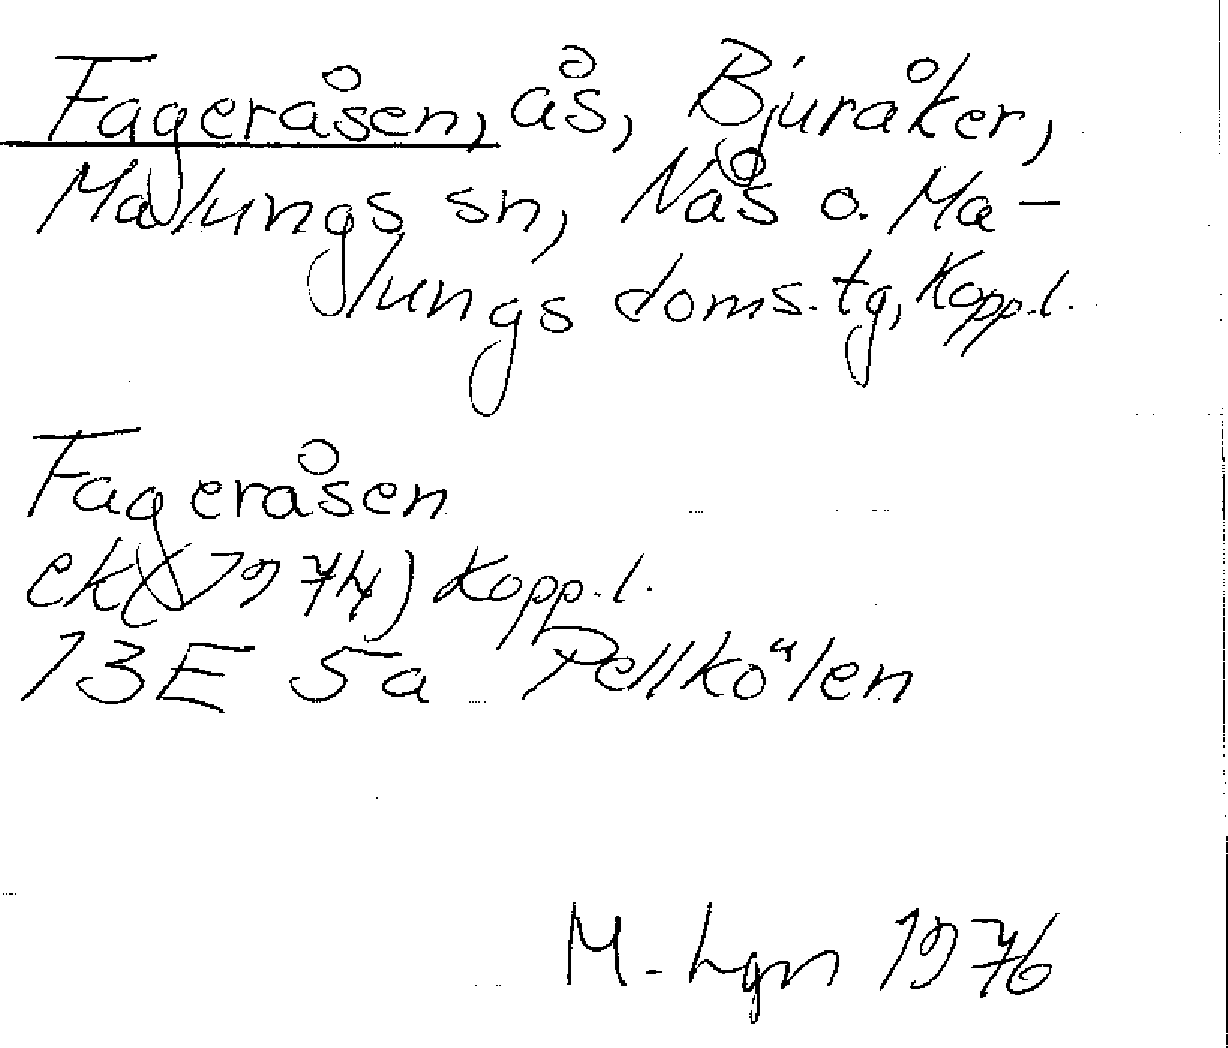 Fageråsen, ås, Bjuråker,
Malungs sn, Nås o. Ma-
lungs doms. tg, Kopp. l.
Fageråsen
ek (1974) Kopp. l.
13E 5a Pellkölen
M-Lgn 1976